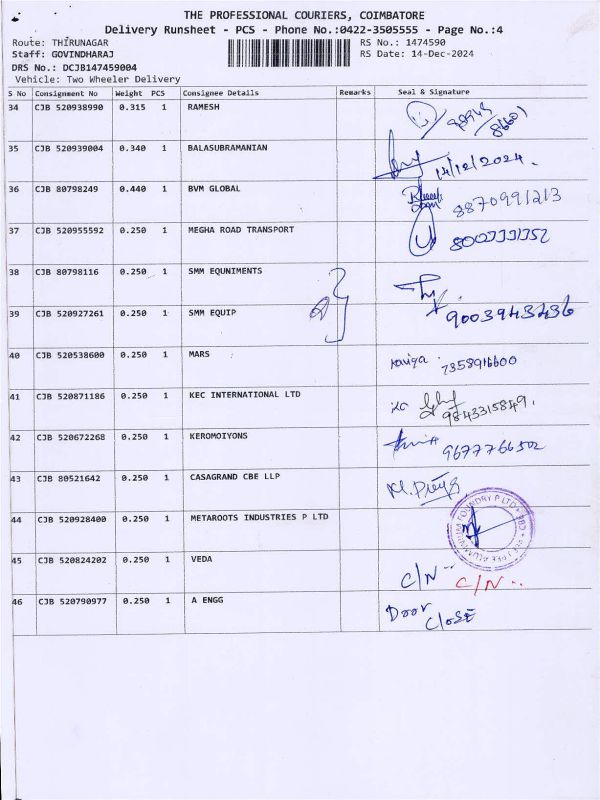 THE PROFESSIONAL COURIERS, COIMBATORE
Delivery Runsheet - PCS - Phone No.:0422-3505555 - Page No.:4
Route: THIRUNAGAR RS No.: 1474590
Staff: GOVINDHARAJ RS Date: 14-Dec-2024
DRS No.: DCJB147459004
Vehicle: Two Wheeler Delivery
S No Consignment No Weight PCS Consignee Details Remarks Seal & Signature
34 CJB 520938990 0.315 1 RAMESH
35 CJB 520939004 0.340 1 BALASUBRAMANIAN 14/12/2024.
36 CJB 80798249 0.440 1 BVM GLOBAL 8870991213
37 CJB 520955592 0.250 1 MEGHA ROAD TRANSPORT
38 CJB 80798116 0.250 1 SMM EQUNIMENTS
39 CJB 520927261 0.250 1 SMM EQUIP 9003943436
40 CJB 520538600 0.250 1 MARS 7358916600
41 CJB 520871186 0.250 1 KEC INTERNATIONAL LTD 9843315849.
42 CJB 520672268 0.250 1 KEROMOIYONS 9677766502
43 CJB 80521642 0.250 1 CASAGRAND CBE LLP
44 CJB 520928400 0.250 1 METAROOTS INDUSTRIES P LTD FOUNDRY P LTD
45 CJB 520824202 0.250 1 VEDA C/N C/N
46 CJB 520790977 0.250 1 A ENGG Door
Close